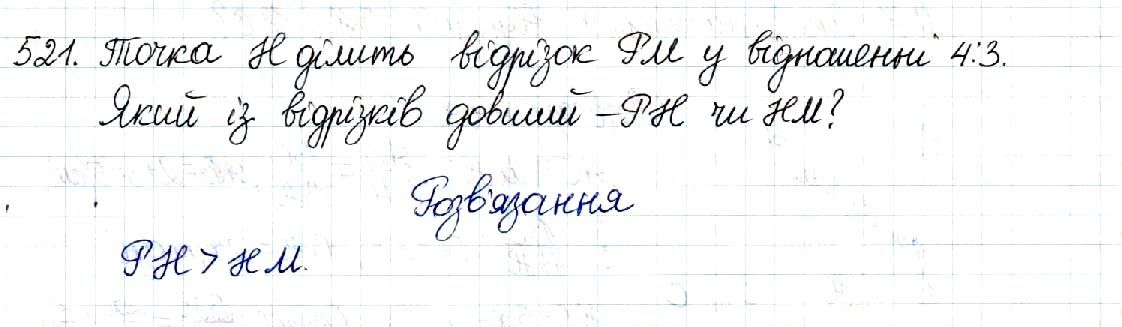 521. Точка Н ділить відрізок РМ у відношенні 4:3.
Який із відрізків довший – РН чи НМ?
Розв'язання
РН > НМ.